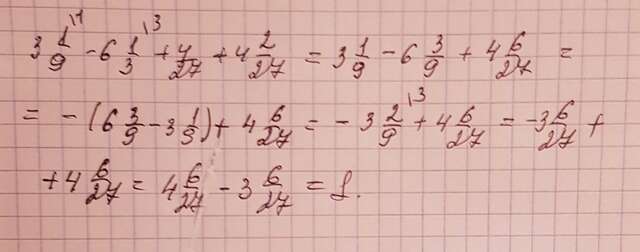 3 1/9 \1 - 6 1/3 \3 + 4/27 + 4 2/27 = 3 1/9 - 6 3/9 + 4 6/27 =
= - (6 3/9 - 3 1/9) + 4 6/27 = - 3 2/9 \3 + 4 6/27 = - 3 6/27 +
+ 4 6/27 = 4 6/27 - 3 6/27 = 1.